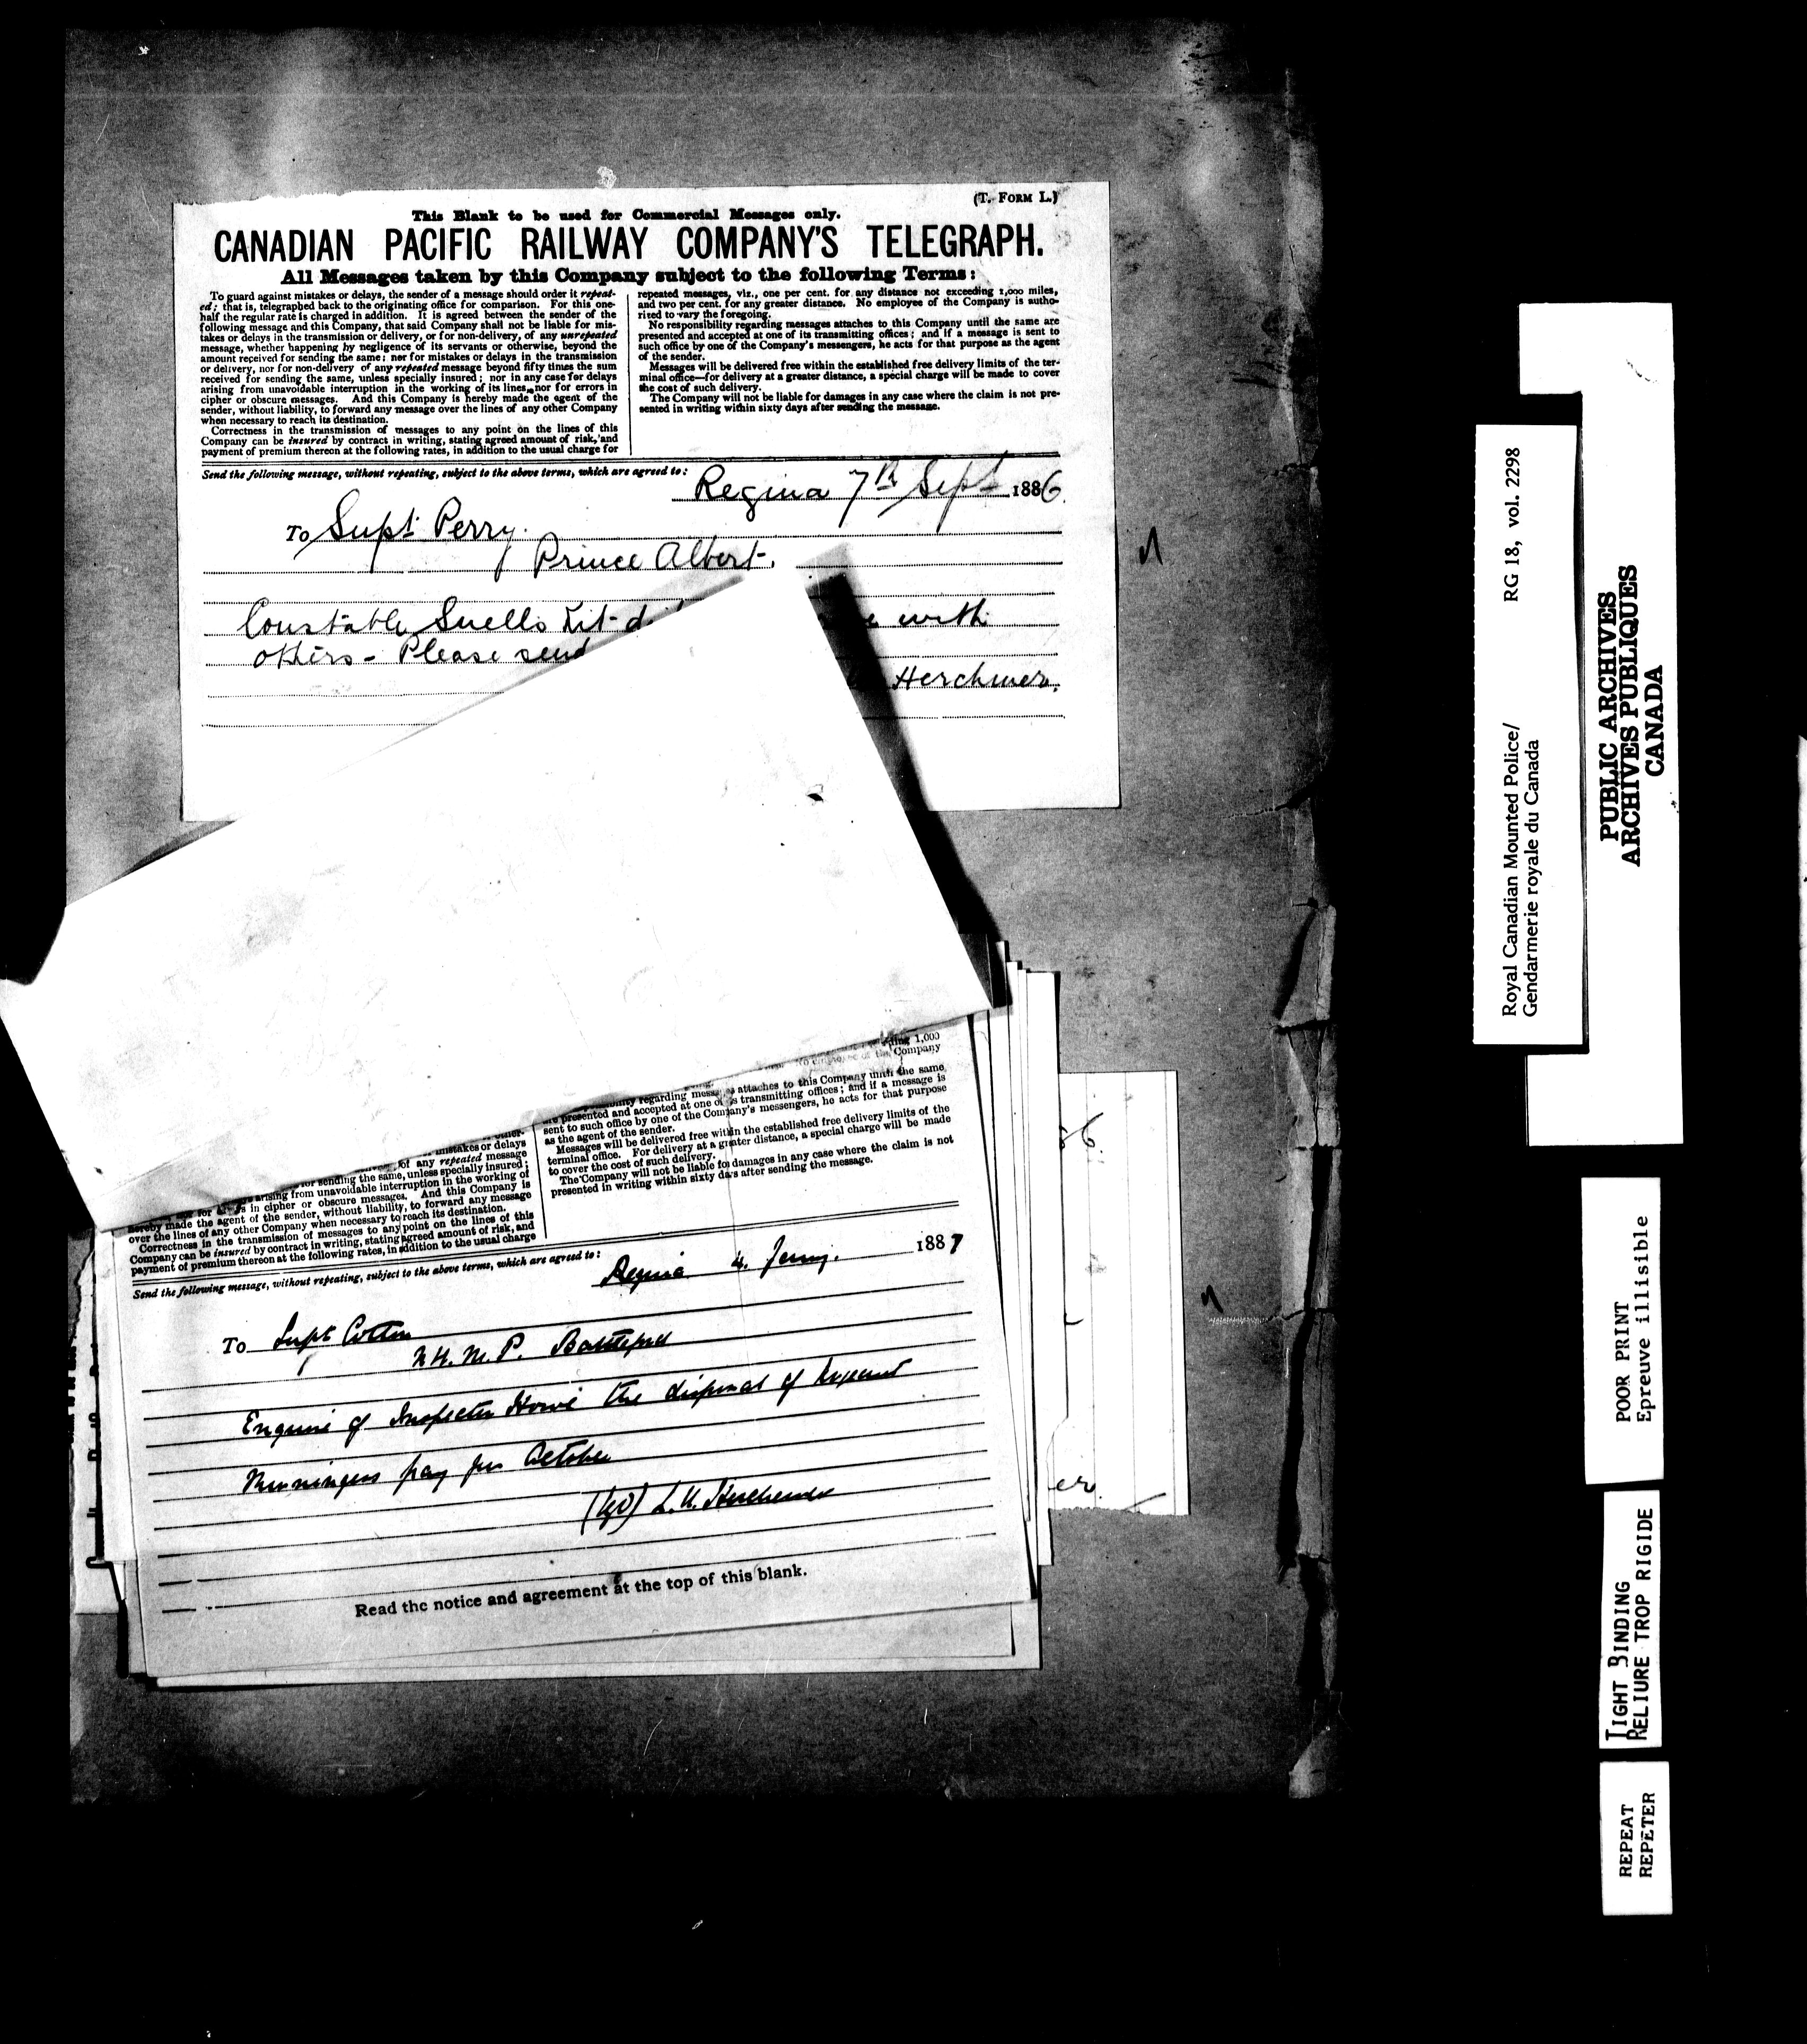 (T. FORM L.)
This Blank to be used for Commercial Messages only.
CANADIAN PACIFIC RAILWAY COMPANY'S TELEGRAPH.
All Messages taken by this Company subject to the following Terms:
To guard against mistakes or delays, the sender of a message should order it repeat-
ed; that is, telegraphed back to the originating office for comparison. For this one-
half the regular rate is charged in addition. It is agreed between the sender of the
following message and this Company, that said Company shall not be liable for mis-
takes or delays in the transmission or delivery, or for non-delivery, of any unrepeated
message, whether happening by negligence of its servants or otherwise, beyond the
amount received for sending the same; nor for mistakes or delays in the transmission
or delivery, nor for non-delivery of any repeated message beyond fifty times the sum
received for sending the same, unless specially insured; nor in any case for delays
arising from unavoidable interruption in the working of its lines, nor for errors in
cipher or obscure messages. And this Company is hereby made the agent of the
sender, without liability, to forward any message over the lines of any other Company
when necessary to reach its destination.
Correctness in the transmission of messages to any point on the lines of this
Company can be insured by contract in writing, stating agreed amount of risk, and
payment of premium thereon at the following rates, in addition to the usual charge for
repeated messages, viz., one per cent. for any distance not exceeding 1,000 miles,
and two per cent. for any greater distance. No employee of the Company is autho-
rized to vary the foregoing.
No responsibility regarding messages attaches to this Company until the same are
presented and accepted at one of its transmitting offices; and if a message is sent to
such office by one of the Company's messengers, he acts for that purpose as the agent
of the sender.
Messages will be delivered free within the established free delivery limits of the ter-
minal office—for delivery at a greater distance, a special charge will be made to cover
the cost of such delivery.
The Company will not be liable for damages in any case where the claim is not pre-
sented in writing within sixty days after sending the message.
Send the following message, without repeating, subject to the above terms, which are agreed to:
Regina 7th Sept 1886.
To Supt. Perry.
Prince Albert.
Constable Snells Kit with
others - Please send
Herchmer.
1,000
the Company
regarding attaches to this Company until the same
presented and accepted at one of its transmitting offices; and if a message is
sent to such office by one of the Company's messengers, he acts for that purpose
as the agent of the sender.
Messages will be delivered free within the established free delivery limits of the
terminal office. For delivery at a greater distance, a special charge will be made
to cover the cost of such delivery.
The Company will not be liable for damages in any case where the claim is not
presented in writing within sixty days after sending the message.
mistakes or delays
of any repeated message
for sending the same, unless specially insured;
arising from unavoidable interruption in the working of
nor for in cipher or obscure messages. And this Company is
hereby made the agent of the sender, without liability, to forward any message
over the lines of any other Company when necessary to reach its destination.
Correctness in the transmission of messages to any point on the lines of this
Company can be insured by contract in writing, stating agreed amount of risk, and
payment of premium thereon at the following rates, in addition to the usual charge
Send the following message, without repeating, subject to the above terms, which are agreed to:
Regina 4. Jany. 1887
To Supt Cotton
N.W.M.P. Battleford
Enquire of Inspector Howe the disposal of Sergeant
pay for October
L.W. Herchmer
Read the notice and agreement at the top of this blank.
er.
Royal Canadian Mounted Police/
Gendarmerie royale du Canada
RG 18, vol. 2298
PUBLIC ARCHIVES
ARCHIVES PUBLIQUES
CANADA
POOR PRINT
Epreuve illisible
TIGHT BINDING
RELIURE TROP RIGIDE
REPEAT
REPETER